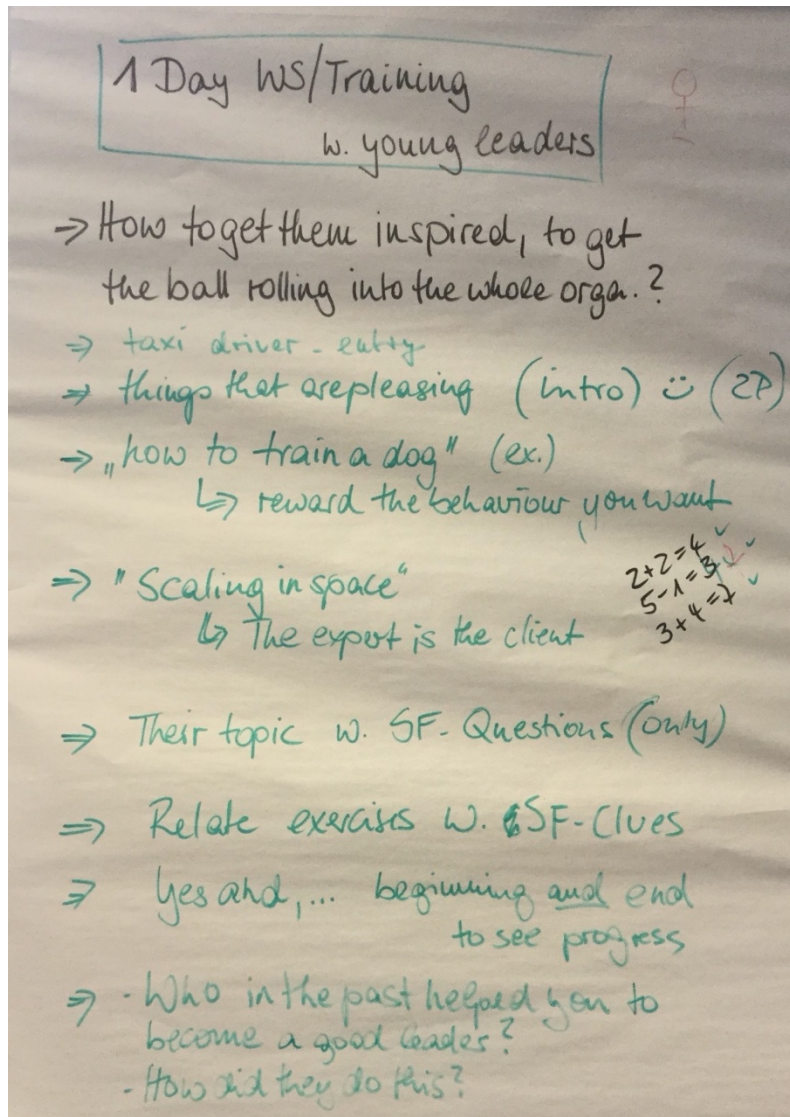 1 Day WS/Training
w. young leaders
→ How to get them inspired, to get
the ball rolling into the whole orga.?
⇒ taxi driver - entry
⇒ things that are pleasing (intro) ü (2P)
→ „how to train a dog" (ex.)
↳ reward the behaviour you want
2+2=4 ✓
5-1=3 ✓
3+4=7 ✓
⇒ "Scaling in space"
↳ The expert is the client
⇒ Their topic w. SF-Questions (only)
⇒ Relate exercises w. SF-Clues
⇒ Yes and,... beginning and end
to see progress
⇒ · Who in the past helped you to
become a good leader?
- How did they do this?